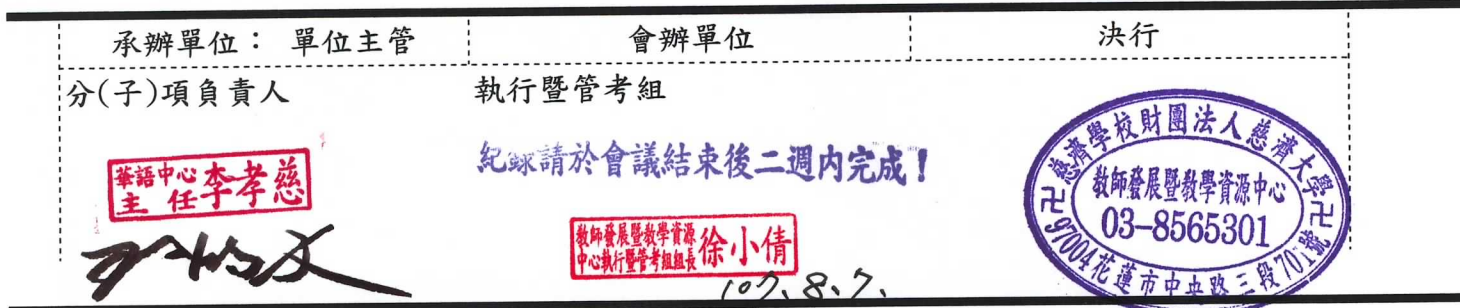 承辦單位： 單位主管
會辦單位
決行
分(子)項負責人
執行暨管考組
紀錄請於會議結束後二週內完成！
華語中心
主 任 李孝慈
教師發展暨教學資源
中心執行暨管考組組長 徐小倩
107、8、7、
慈濟學校財團法人慈濟大學
教師發展暨教學資源中心
03-8565301
97004花蓮市中央路三段701號